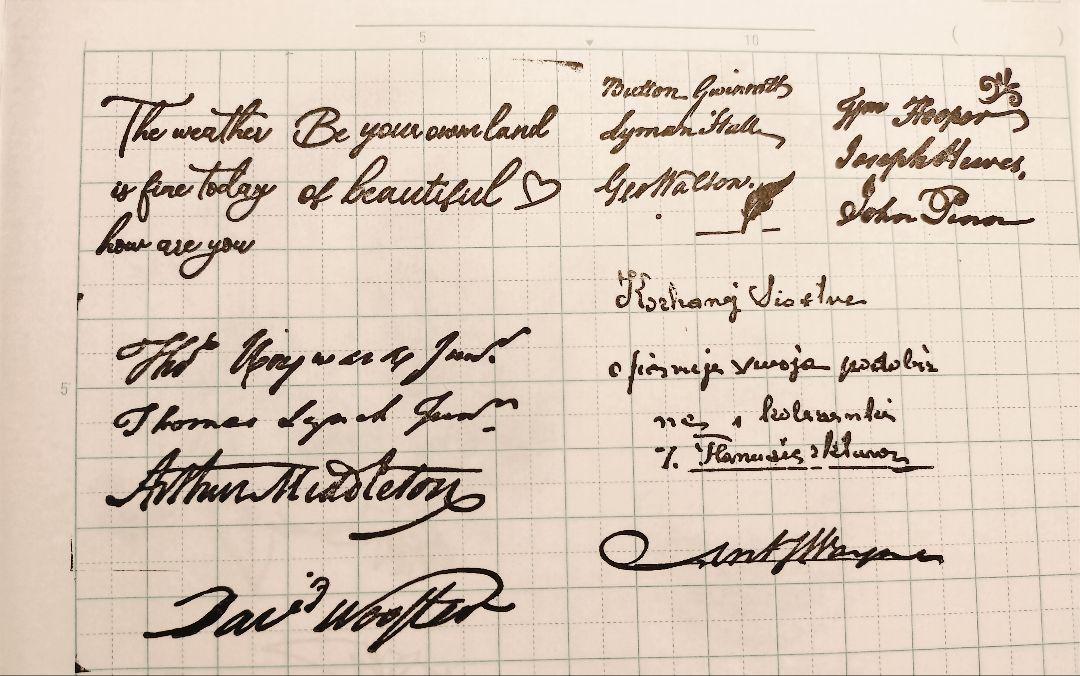 5
10
The weather
is fine today
how are you
Be your own land
of beautiful ♡
Button Gwinnett
Lyman Hall
Geo Walton.
Wm Hooper
Joseph Hewes,
John Penn
Thos Heyward Junr.
Thomas Lynch Junr
Arthur Middleton
David Wooster
Kochanej Siostve
swoja podobiz
nę i
5
Ant Wayne